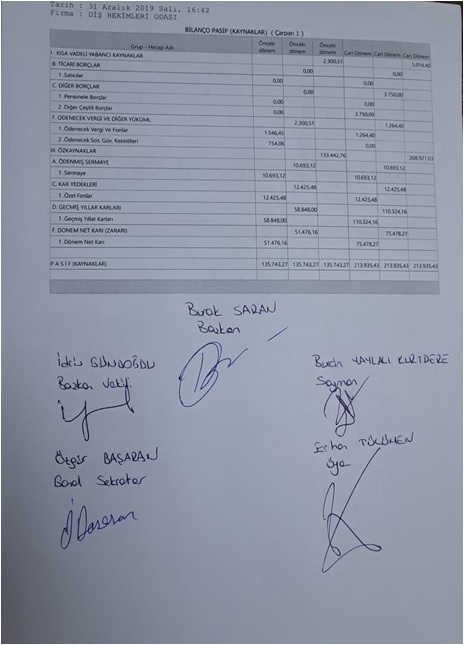 Tarih : 31 Aralık 2019 Salı, 16:42
Firma : DİŞ HEKİMLERİ ODASI
BİLANÇO PASİF (KAYNAKLAR) ( Çarpan 1 )
Grup - Hesap Adı Önceki dönem Önceki dönem Önceki dönem Cari Dönem Cari Dönem Cari Dönem
I . KISA VADELİ YABANCI KAYNAKLAR 2.300,51 5.014,40
B. TİCARİ BORÇLAR 0,00 0,00
1 .Satıcılar 0,00 0,00
C. DİĞER BORÇLAR 0,00 3.750,00
1 .Personele Borçlar 0,00 0,00
2 .Diğer Çeşitli Borçlar 0,00 3.750,00
F. ÖDENECEK VERGİ VE DİĞER YÜKÜML 2.300,51 1.264,40
1 .Ödenecek Vergi Ve Fonlar 1.546,45 1.264,40
2 .Ödenecek Sos. Güv. Kesintileri 754,06 0,00
III. ÖZKAYNAKLAR 133.442,76 208.921,03
A. ÖDENMİŞ SERMAYE 10.693,12 10.693,12
1 .Sermaye 10.693,12 10.693,12
C. KAR YEDEKLERİ 12.425,48 12.425,48
1 .Özel Fonlar 12.425,48 12.425,48
D. GEÇMİŞ YILLAR KARLARI 58.848,00 110.324,16
1 .Geçmiş Yıllar Karları 58.848,00 110.324,16
F. DÖNEM NET KARI (ZARARI) 51.476,16 75.478,27
1 .Dönem Net Karı 51.476,16 75.478,27
P A S İ F (KAYNAKLAR) 135.743,27 135.743,27 135.743,27 213.935,43 213.935,43 213.935,43
Burak SARAN
Başkan
GÜNDOĞDU
Başkan Vekili
Burcin YAYLALI KURTDERE
Sayman
Özgür BAŞARAN
Genel Sekreter
Erhan
Üye